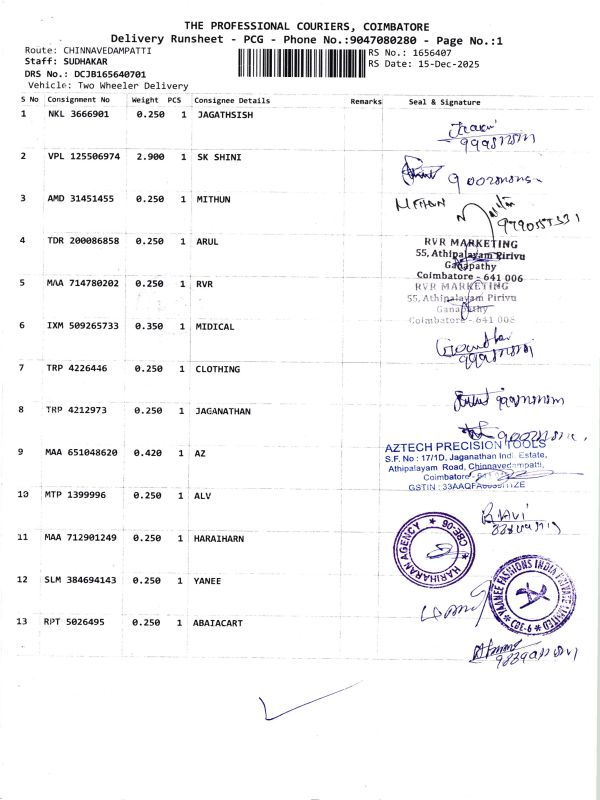 THE PROFESSIONAL COURIERS, COIMBATORE
Delivery Runsheet - PCG - Phone No.:9047080280 - Page No.:1
Route: CHINNAVEDAMPATTI
RS No.: 1656407
Staff: SUDHAKAR
RS Date: 15-Dec-2025
DRS No.: DCJB165640701
Vehicle: Two Wheeler Delivery
S No Consignment No Weight PCS Consignee Details Remarks Seal & Signature
1 NKL 3666901 0.250 1 JAGATHSISH
2 VPL 125506974 2.900 1 SK SHINI
3 AMD 31451455 0.250 1 MITHUN
MITHUN
4 TDR 200086858 0.250 1 ARUL
RVR MARKETING
55, Athipalayam Pirivu
Ganapathy
Coimbatore - 641 006
5 MAA 714780202 0.250 1 RVR
RVR MARKETING
55, Athipalayam Pirivu
Ganapathy
Coimbatore - 641 006
6 IXM 509265733 0.350 1 MIDICAL
7 TRP 4226446 0.250 1 CLOTHING
8 TRP 4212973 0.250 1 JAGANATHAN
9 MAA 651048620 0.420 1 AZ
AZTECH PRECISION TOOLS
S.F. No : 17/1D, Jaganathan Indl. Estate,
Athipalayam Road, Chinnavedampatti,
Coimbatore
GSTIN :
10 MTP 1399996 0.250 1 ALV
11 MAA 712901249 0.250 1 HARAIHARN
HARIHARAN AGENCY
CBE-06
12 SLM 384694143 0.250 1 YANEE
YAANEE FASHIONS INDIA PRIVATE LIMITED
CBE-6
13 RPT 5026495 0.250 1 ABAIACART